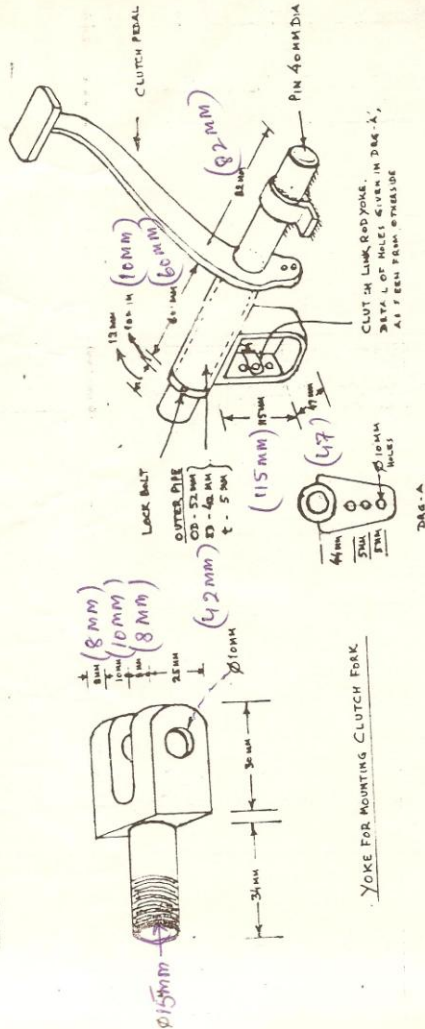 CLUTCH PEDAL
(82 MM)
82 MM
PIN 40MM DIA
(10MM)
(60MM)
12 MM
60 MM
LOCK BOLT
OUTER PIPE
OD - 52 MM
ID - 42 MM
t - 5 MM
(42 MM)
(115MM)
115MM
47 MM
(47)
CLUTCH LINK ROD YOKE.
DETAIL OF HOLES GIVEN IN DRG-'A',
AS SEEN FROM OTHERSIDE
44MM
5MM
5MM
Ø10MM
HOLES
DRG-A
(8MM)
(10MM)
(8MM)
8MM
10MM
8MM
25MM
Ø10MM
30MM
34MM
Ø15mm
YOKE FOR MOUNTING CLUTCH FORK